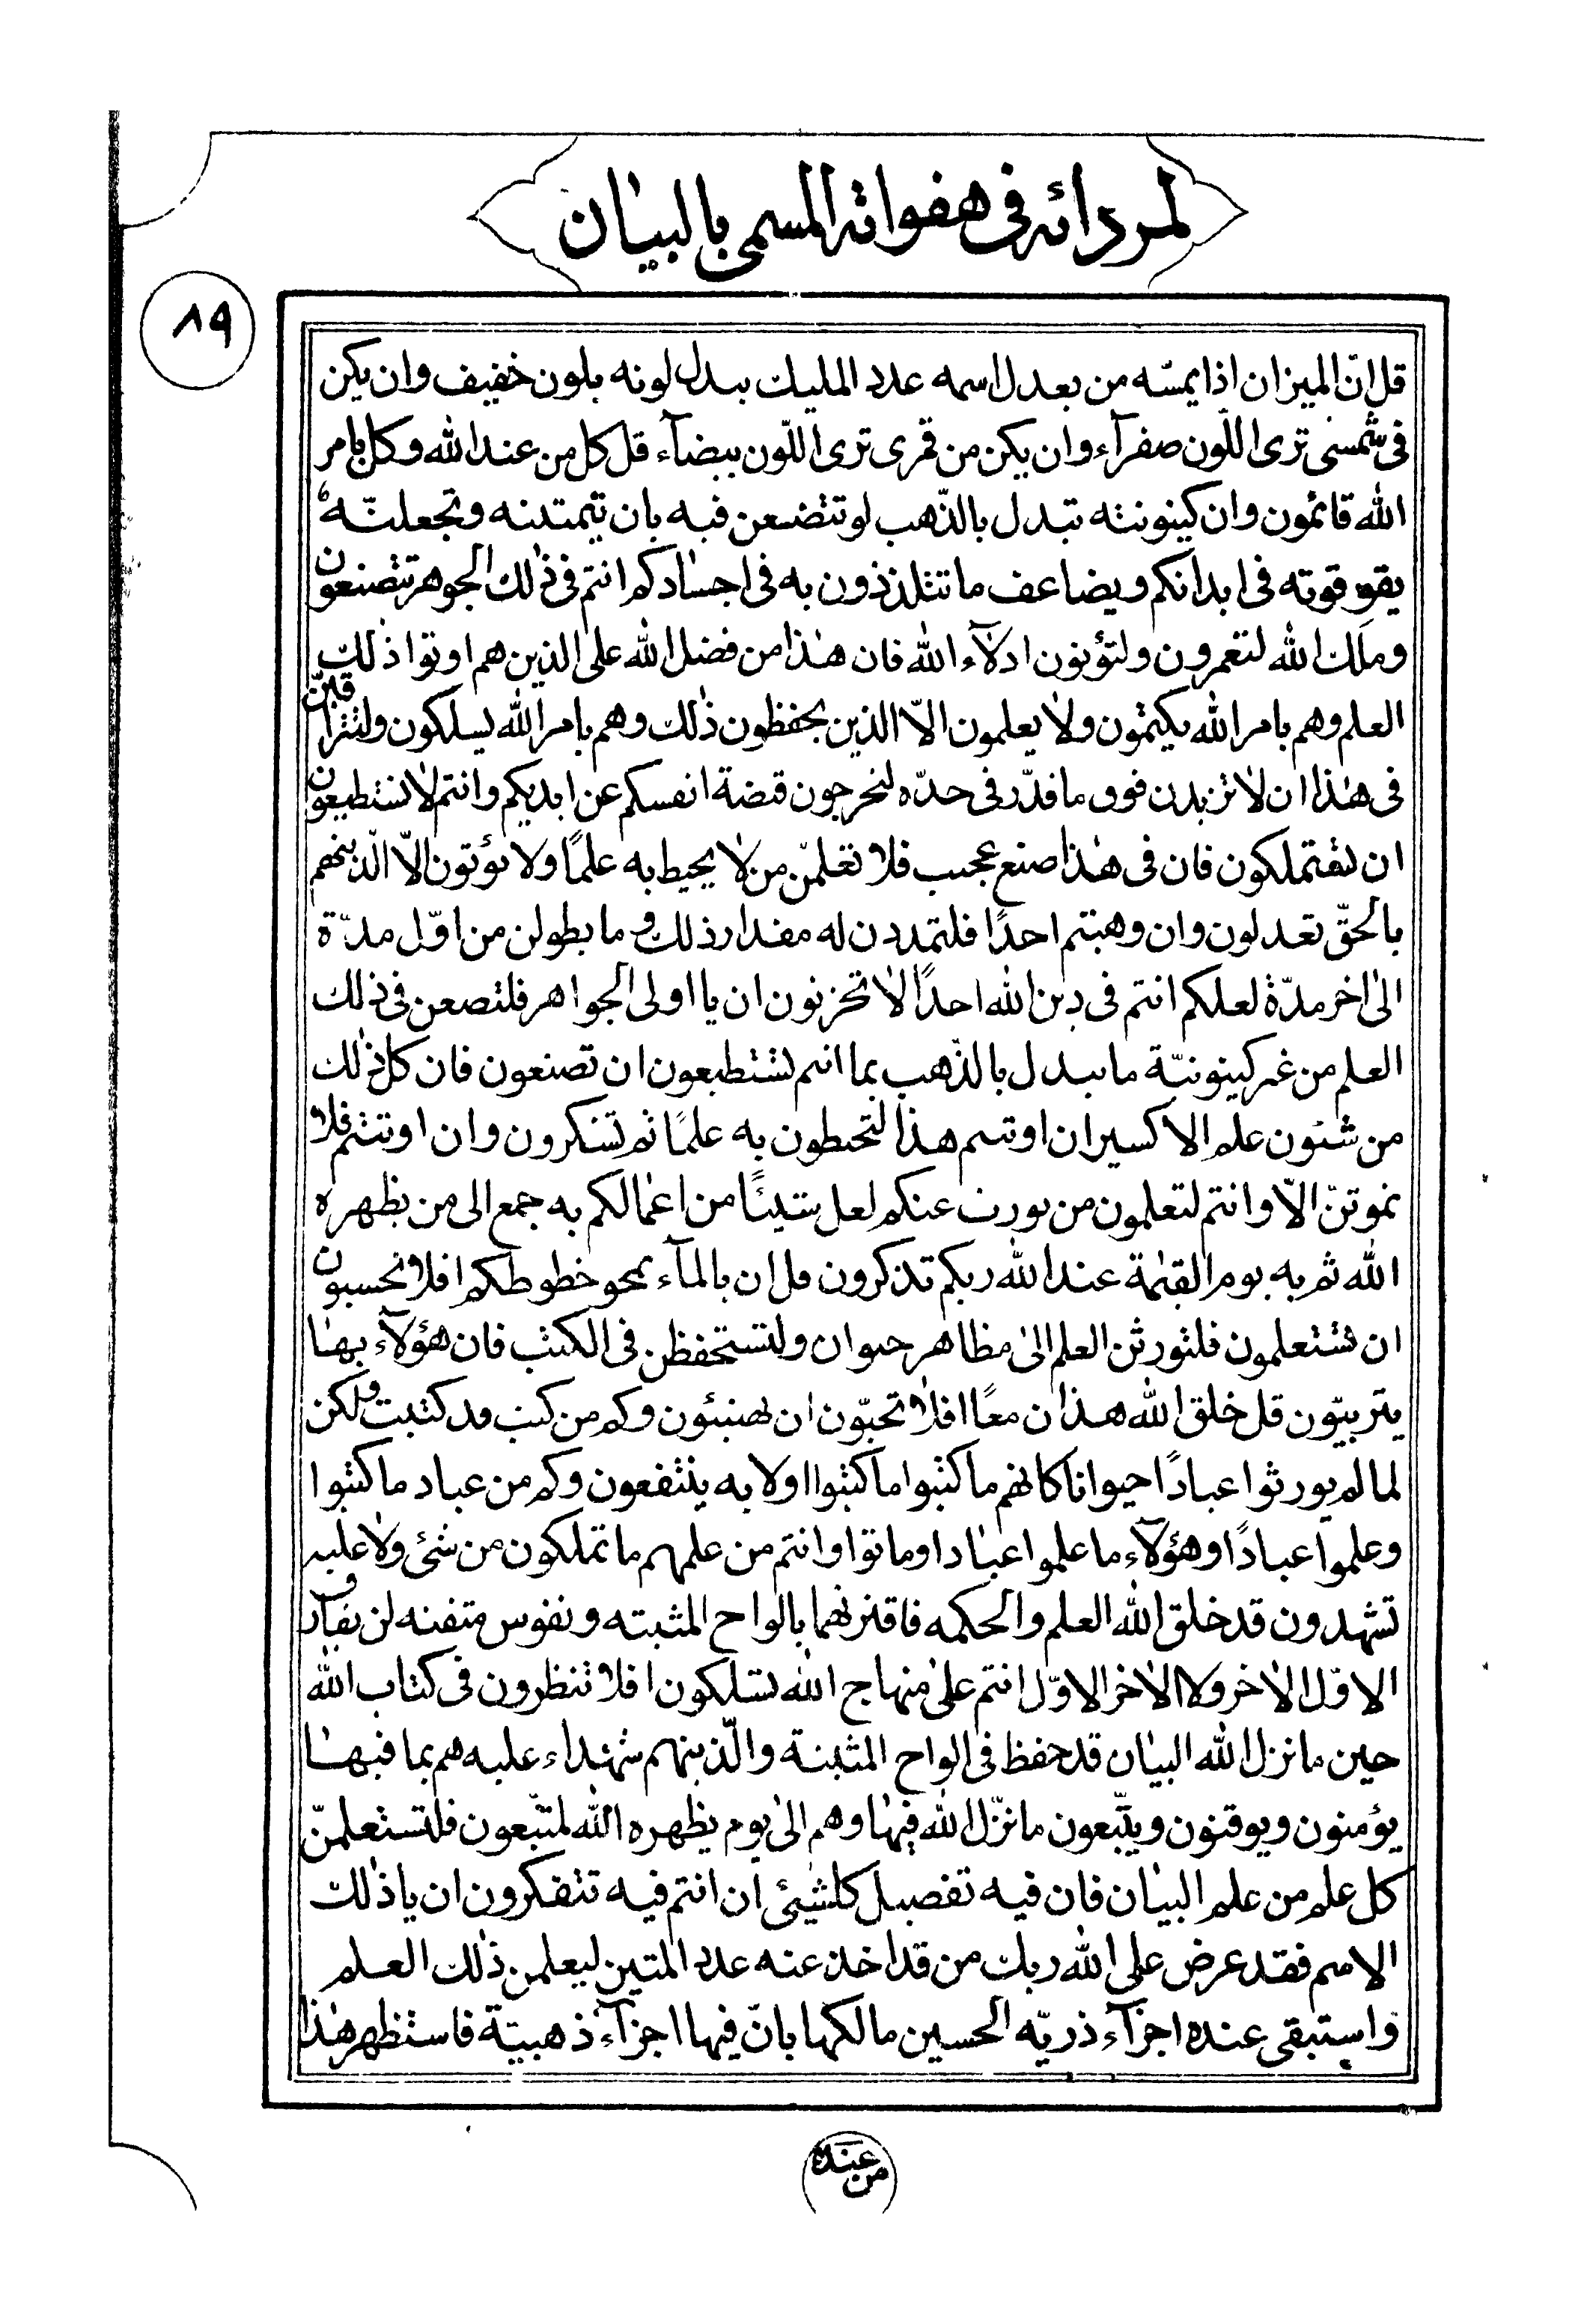 لمردائه فى هفواته المسمى بالبيان
٨٩
قل انّ الميزان اذا يمسّه من بعدل اسمه عدد المليك يبدل لونه بلون خفيف وان يكن
فى شّمسى ترى اللّون صفرآء وان يكن من قمرى ترى اللّون بيضآء قل كل من عند الله وكل بامر
الله قائمون وان كينونته تبدل بالذّهب لو تتضعن فيه بان تيمتدنه وتجعلنّه
يقو قوته فى ابدانكم ويضاعف ما تتلذذون به فى اجسادكم انتم فى ذلك الجوهر تتصنعون
وملك الله لتعمرون ولتؤتون ادلآء الله فان هذا من فضل الله على الذين هم اوتوا ذلك
العلم وهم بامر الله يكتمون ولا يعلمون الاّ الذين يحفظون ذلك وهم بامر الله يسلكون ولتتراقبنّ
فى هذا ان لا تزيدن فوق ما قدّر فى حدّه لتخرجون قتضة انفسكم عن ايديكم وانتم لا تستطيعون
ان تقتملكون فان فى هذا صنع عجيب فلا تعلمّن من لا يحيط به علمًا ولا تؤتون الاّ الّذينهم
بالحقّ تعدلون وان وهبتم احدًا فلتمددن له مقدار ذلك و ما يطولن من اوّل مدّة
الى اخر مدّة لعلكم انتم فى دين الله احدًا لا تحزنون ان يا اولى الجواهر فلتصعن فى ذلك
العلم من غير كينونيّة ما يبدل بالذّهب بما انتم تستطيعون ان تصنعون فان كل ذلك
من شئون علم الاكسير ان اوتيتم هذا لتحيطون به علمًا ثم تشكرون وان اوتيتم فلا
تموتنّ الاّ وانتم لتعلمون من يورث عنكم لعل شيئًا من اعمالكم به جمع الى من يظهره
الله ثم به يوم القيمة عند الله ربكم تذكرون قل ان بالمآء يمحو خطوطكم افلا تحسبون
ان تستعلمون فلتورثن العلم الى مظاهر حيوان ولتستحفظن فى الكتب فان هؤلآء بها
يتربيّون قل خلق الله هذان معًا افلا تحبّون ان تهنيئون وكم من كتب قد كتبت ولكن
لما لم يورثوا عبادًا حيوانا كانهم ما كتبوا ما كتبوا اولا به ينتفعون وكم من عباد ما كتبوا
وعلموا عبادًا وهؤلآء ما علموا عبادا وماتوا وانتم من علمهم ما تملكون من شئ ولا عليه
تشهدون قد خلق الله العلم والحكمه فاقترنهما بالواح المثبته ونفوس متقنه لن يفارق
الاوّل الاخر ولا الاخر الاوّل انتم على منهاج الله تسلكون افلا تنظرون فى كتاب الله
حين ما نزل الله البيان قد حفظ فى الواح المثبتة والّذينهم شهداء عليه هم بما فيها
يؤمنون ويوقنون ويتّبعون ما نزّل الله فيها وهم الى يوم يظهره الله لمتّبعون فلتستعلمنّ
كل علم من علم البيان فان فيه تفصيل كلشيئى ان انتم فيه تتفكرون ان يا ذلك
الاسم فقد عرض على الله ربك من قد اخذ عنه عدد المتين ليعلمن ذلك العلم
واستبقى عنده اجزآء ذريّه الحسين مالكها بانّ فيها اجزآء ذهبيّة فاستظهر هذا
من عنده